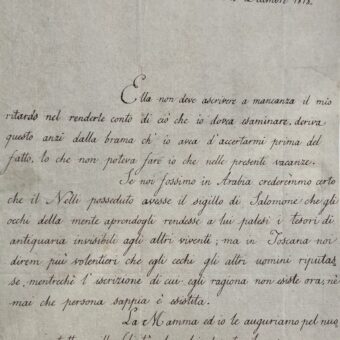 Ella non deve ascrivere a mancanza il mio
ritardo nel renderle conto di ciò che io dovea esaminare, deriva
questo anzi dalla brama ch' io avea d'accertarmi prima del
fatto, lo che non poteva fare io che nelle presenti vacanze.
Se noi fossimo in Arabia crederemmo certo
che il Nelli posseduto avesse il sigillo di Salomone che gli
occhi della mente aprendogli rendesse a lui palesi i tesori di
antiquaria invisibili agli altri viventi; ma in Toscana noi
direm più volentieri che egli cechi gli altri uomini riputas-
se, mentrechè l' iscrizione di cui egli ragiona non esiste ora, nè
mai che persona sappia è esistita.
La Mamma ed io le auguriamo pel nuo